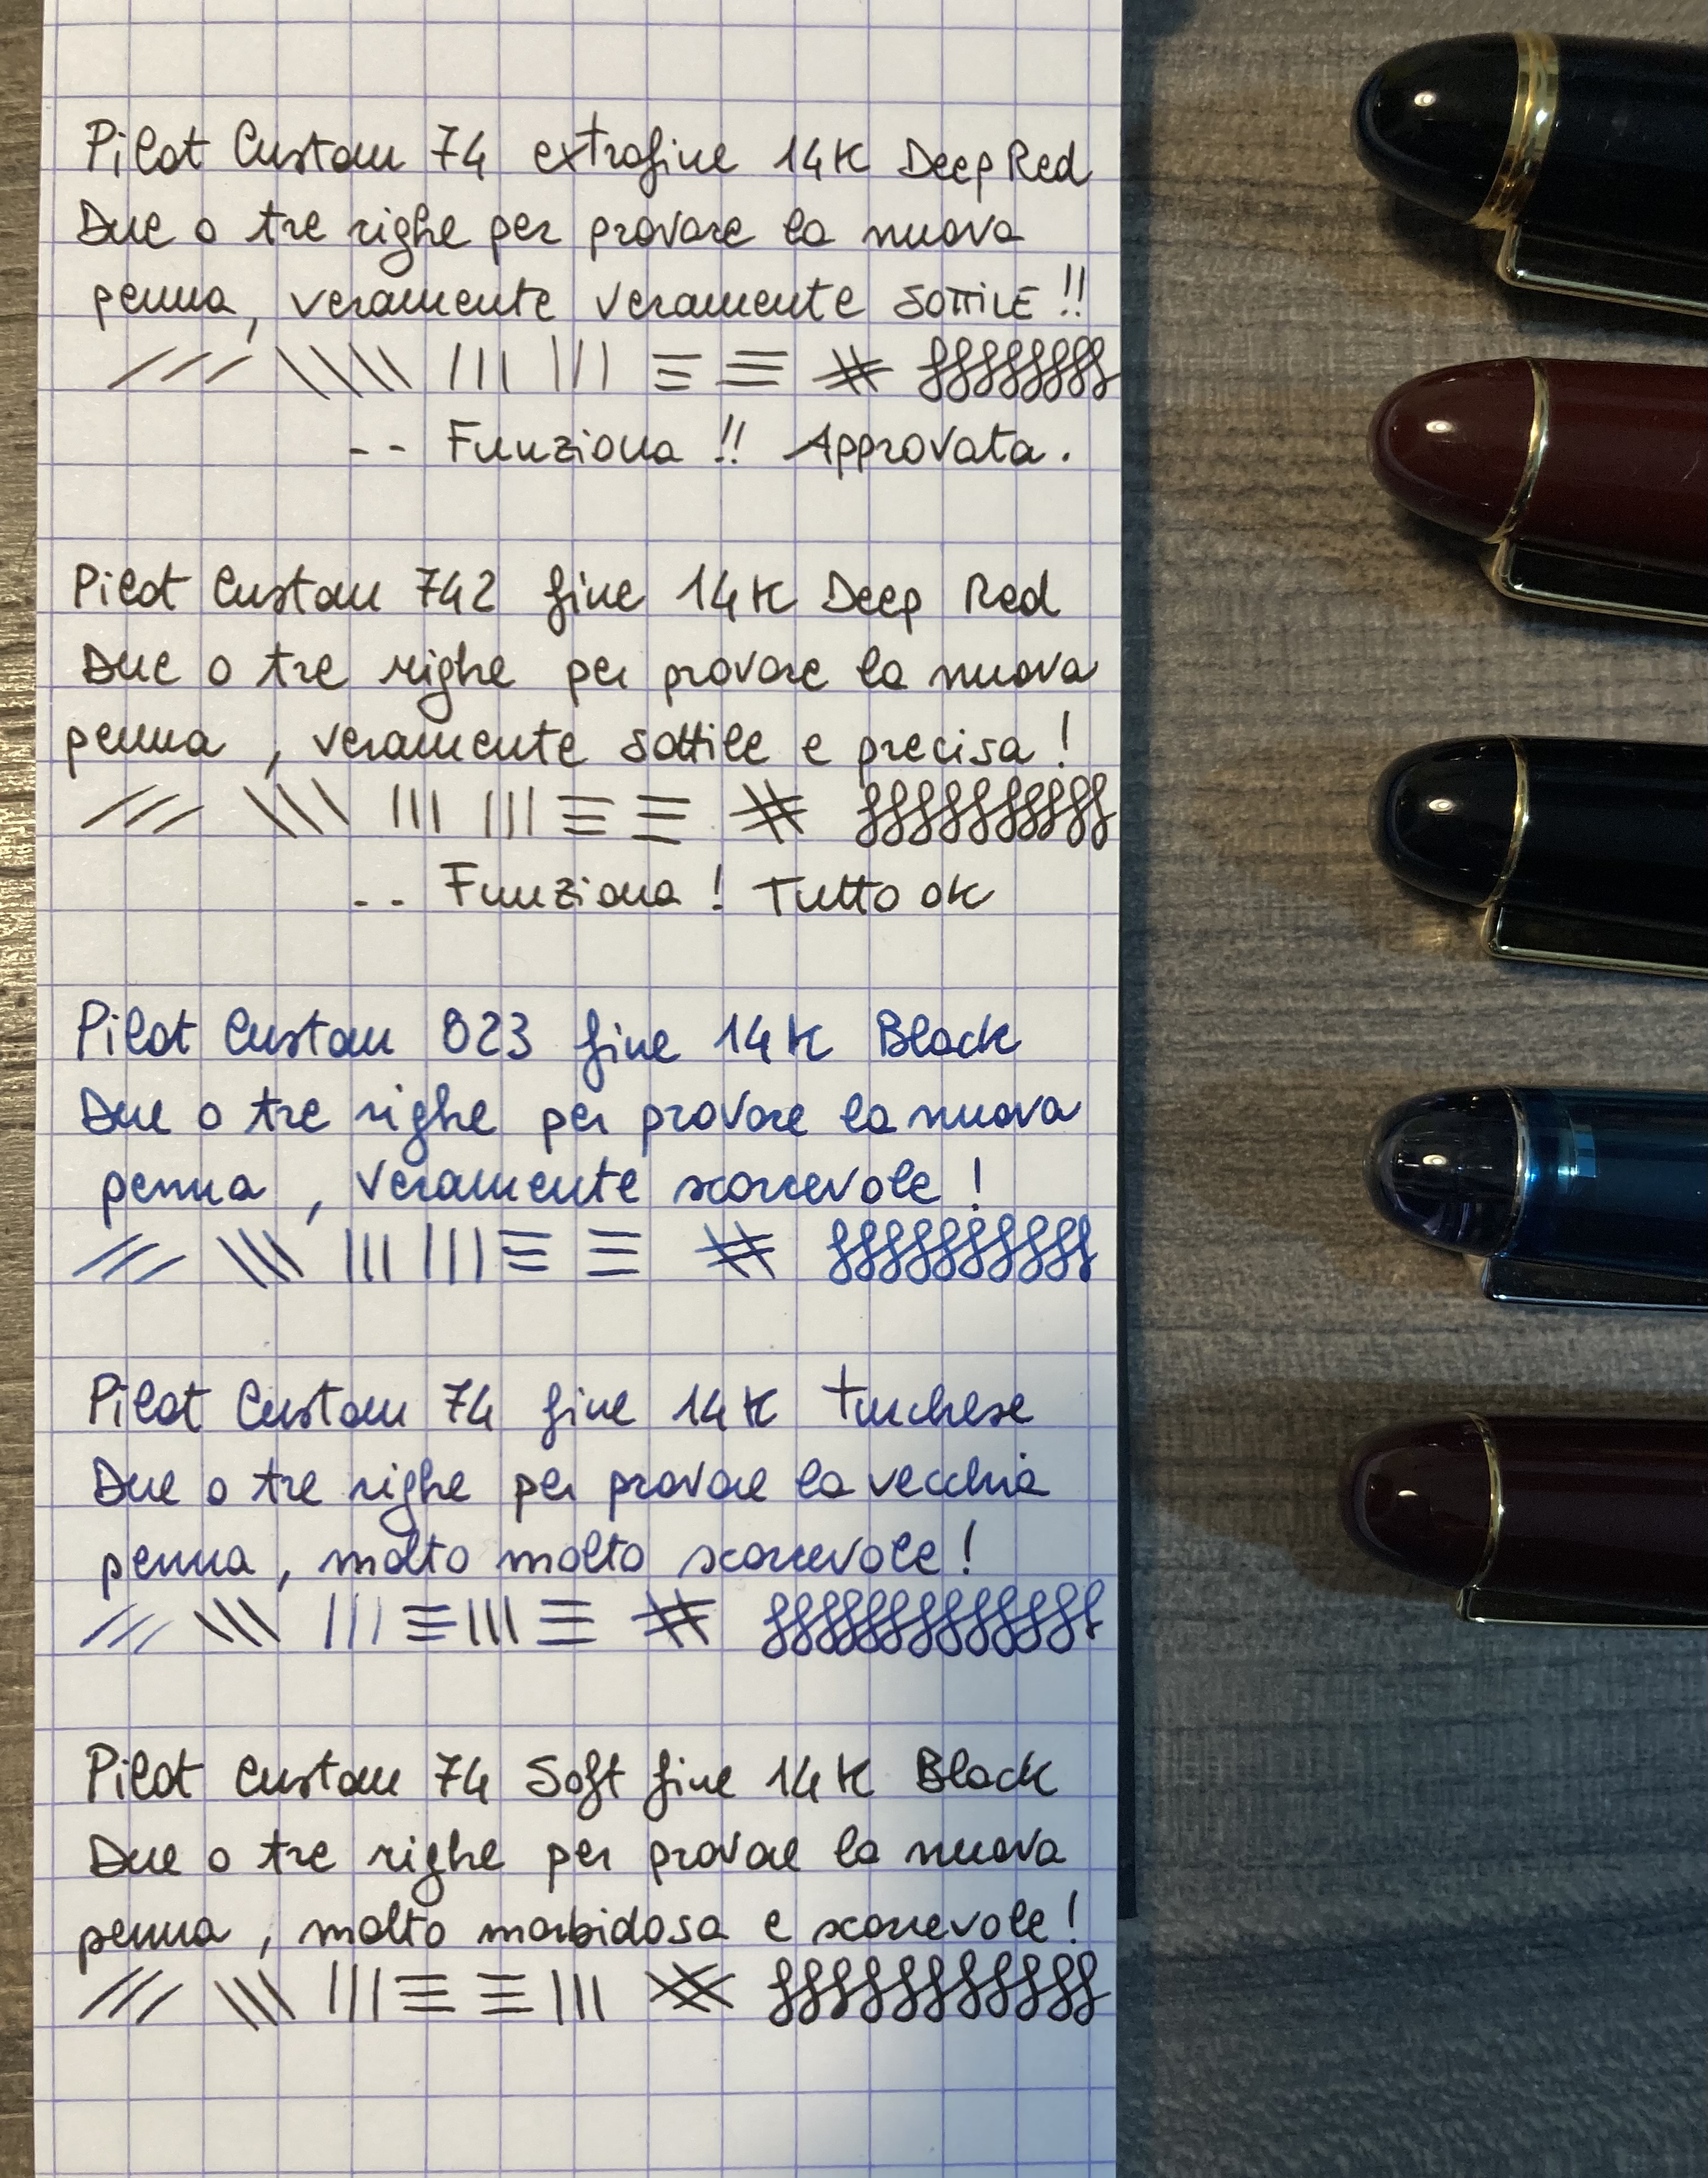 Pilot Custom 74 extrafine 14K Deep Red
Due o tre righe per provare la nuova
penna, veramente veramente SOTTILE !!
-- Funziona !! Approvata.
Pilot Custom 742 fine 14K Deep Red
Due o tre righe per provare la nuova
penna, veramente sottile e precisa !
-- Funziona ! Tutto ok
Pilot Custom 823 fine 14K Black
Due o tre righe per provare la nuova
penna, veramente scorrevole !
Pilot Custom 74 fine 14K turchese
Due o tre righe per provare la vecchia
penna, molto molto scorrevole !
Pilot Custom 74 Soft fine 14K Black
Due o tre righe per provare la nuova
penna, molto morbidosa e scorrevole !